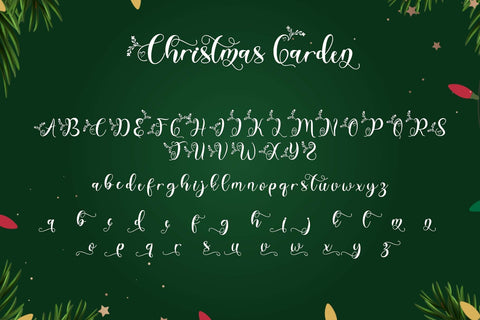 Christmas Garden
A B C D E F G H I J K L M N O P Q R S
T U V W X Y Z
a b c d e f g h i j k l m n o p q r s t u v w x y z
a b c d e f g h i j k l m n
o p q r s u v w x y z